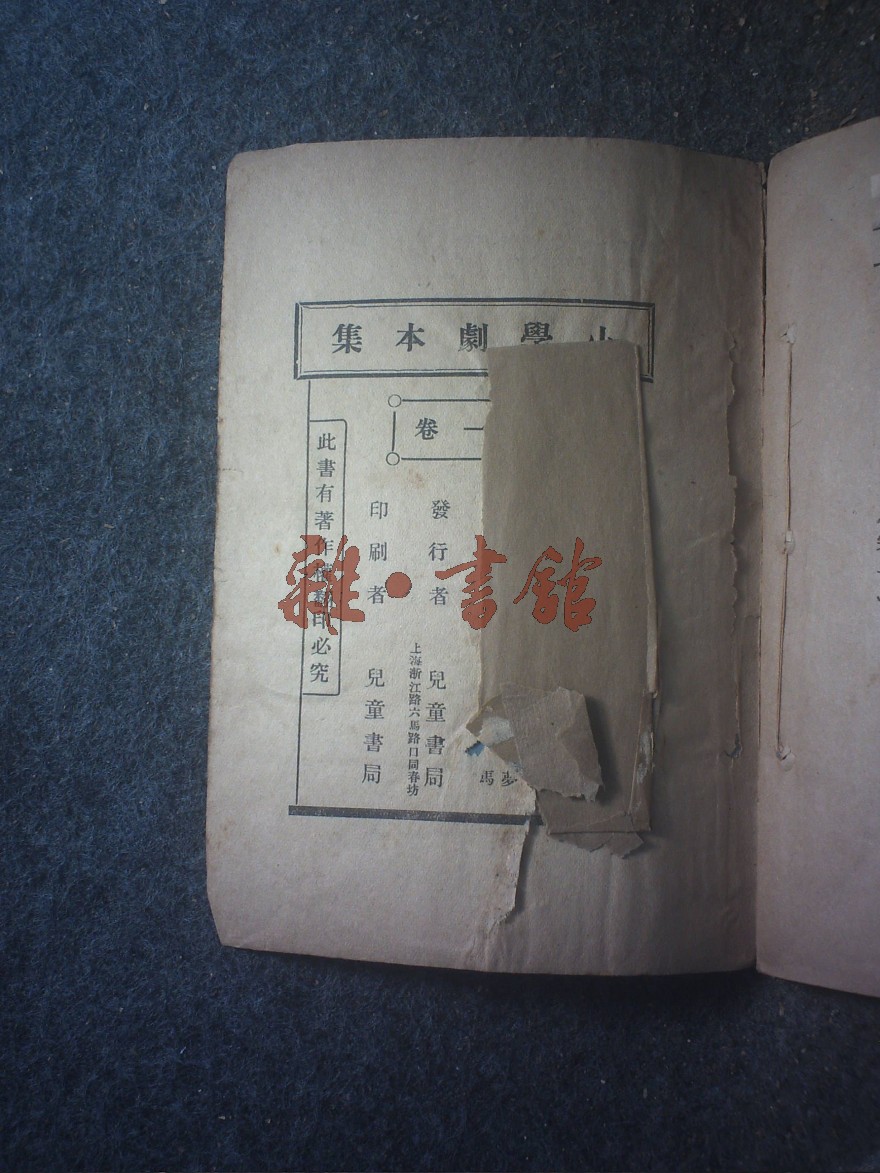 小學劇本集
一卷
馮夢
發行者 兒童書局
上海浙江路六馬路口同春坊
印刷者 兒童書局
此書有著作權翻印必究
雜·書館